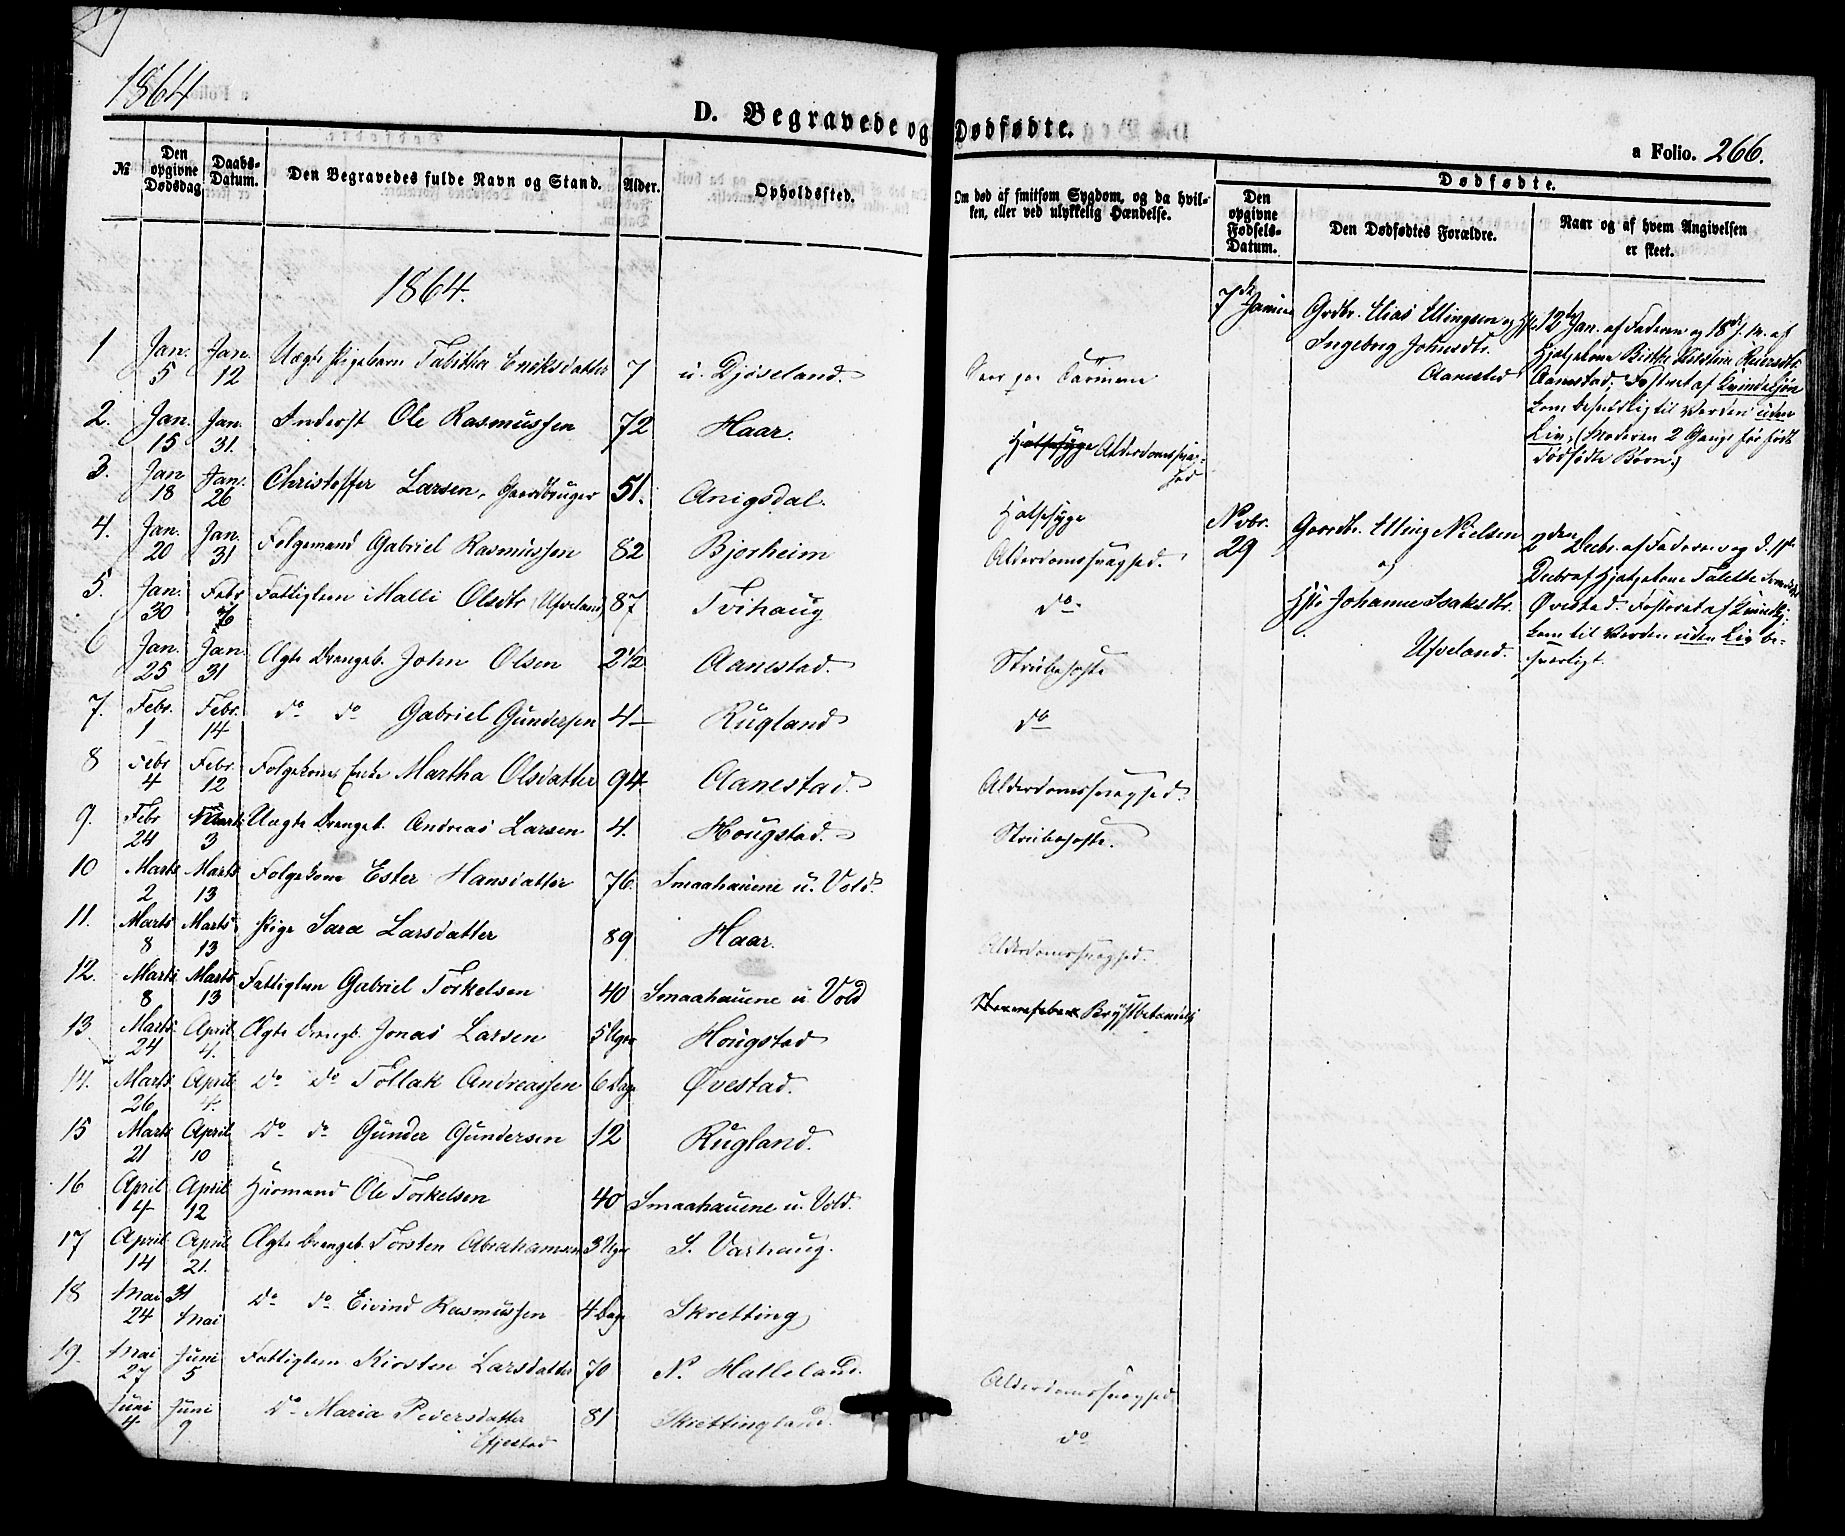 1864
D. Begravede og Dødfødte.
a Folio. 266.
№
Den opgivne Dødsdag
Daabs-Datum.
Den Begravedes fulde Navn og Stand.
Alder.
Opholdssted.
Om død af smitsom Sygdom, og da hvil-
ken, eller ved ulykkelig Hændelse.
Dødfødte.
Den opgivne Fødsels-Datum.
Den Dødfødtes Forældre.
Naar og af hvem Angivelsen
er skeet.
1864.
1 Jan. 5 Jan. 12 Uægte Pigebarn Tabitha Eriksdatter 7 u. Djøseland.
2. Jan. 15 Jan. 31. Inderst Ole Rasmussen 72 Haar. Halsesyge Alderdomssvag-
hed
3. Jan 18 Jan. 26 Christoffer Larsen, Gaardbruger 51. Anigsdal. Halsesyge
4. Jan. 20 Jan. 31 Folgemand Gabriel Rasmussen 82 Bjorheim Alderdomssvaghed.
5. Jan. 30 Febr Fattiglem Malli Olsdtr (Ufseland) 87 Tvihaug do.
6 Jan. 25 Jan. 31 Ægte Drengeb. John Olsen 2½ Aanestad. Strubehoste
7. Febr. 1 Febr. 14 do do Gabriel Gundersen 4 Rugland do
8 Febr 4 Febr. 12 Folgekone Enke Martha Olsdatter 94 Aanestad. Alderdomssvaghed.
9. Febr 24 Marts 3 Uægte Drengeb. Andreas Larsen 4. Hougstad. Strubehoste.
10 Marts 2 Marts 13 Folgekone Ester Hansdatter 76 Smaahauene u. Vold.
11. Marts 8 Marts 13 Pige Sara Larsdatter 89 Haar. Alderdomssvaghed.
12. Marts 8 Marts 13 Fattiglem Gabriel Torkelsen 40 Smaahauene u. Vold Brystbetændelse
13 Marts 24 April 4. Ægte Drengb. Jonas Larsen 5 Uger Hougstad
14. Marts 26 April 4. Do Do Tollak Andreassen 6 Dage Øvestad.
15 Marts 21 April 10 Do do Gunder Gundersen 12 Rugland.
16 April 4 April 12 Huusmand Ole Torkelsen 40 Smaahauene u. Vold.
17 April 14 April 21. Ægte Drengeb. Torsten Abrahamsen 3 Uger S. Varhaug.
18 Mai 24 31 Mai Do do Eivind Rasmussen 4 Dage Skretting
19. Mai 27 Juni 5 Fattiglem Kirsten Larsdatter 70 N. Halleland. Alderdomssvaghed
Juni 4 Juni 9 Do Maria Pedersdatter 81 Skrettingland. do
7de Januar
Grdbr. Elias Ellingsen og Hst.
Ingeborg Johnsdtr.
Aanestad
12te Jan. af Faderen og 18de af
Hjelpekone Birthe
Aanestad; Fostret af Kvindekjøn
kom besværligt til Verden uden
Liv. (Moderen 2 Gange før født
dødfødte Børn.)
Novbr. 29
Gaardbr. Elling Nielsen
og
Hst. Johanne Isaksdtr.
Ufseland.
2den Decbr. af Faderen og d. 11te
Decbr af Hjelpekone Talette
Øvestad. Fosteret af Kvindekj:
kom til Verden uden Liv be-
sværligt.